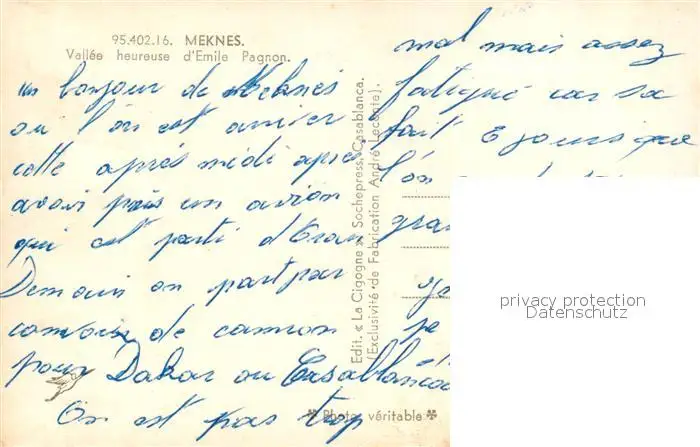 95.402.16. MEKNES.
Vallée heureuse d'Emile Pagnon.
un bonjour de Meknés
ou l'on est arriver
cette aprés midi apres
avoir pris un avion
qui est parti d'Oran
Demain on part par
convois de camion
pour Dakar ou Casablanca
On est pas trop
mal mais assez
fatigué car sa
fait jours que
l'on
gran
Edit. « La Cigogne » Sochepress, Casablanca.
(Exclusivité de Fabrication André Leconte).
Photo véritable
privacy protection
Datenschutz